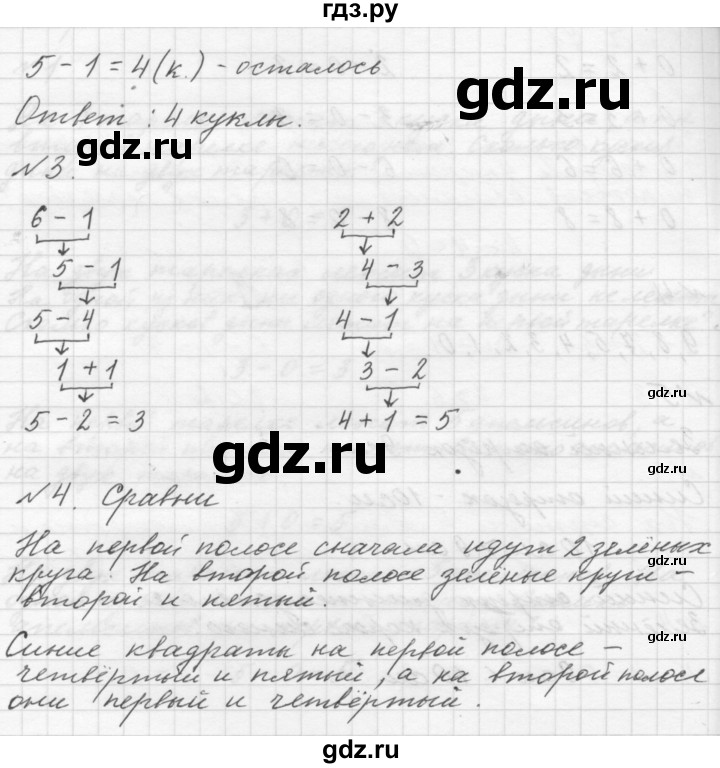 гдз.ру
5 - 1 = 4 (к.) - осталось
Ответ : 4 куклы.
gdz.ru
gdz.ru
№3.
6 - 1 2 + 2
5 - 1 4 - 3
5 - 4 4 - 1
1 + 1 3 - 2
gdz.ru
5 - 2 = 3 4 + 1 = 5
gdz.ru
gdz.ru
№4. Сравни
На первой полосе сначала идут 2 зелёных
gdz.ru
круга. На второй полосе зелёные круги -
второй и пятый.
Синие квадраты на первой полосе -
gdz.ru
четвёртый и пятый, а на второй полосе
они первый и четвёртый.
gdz.ru
gdz.ru